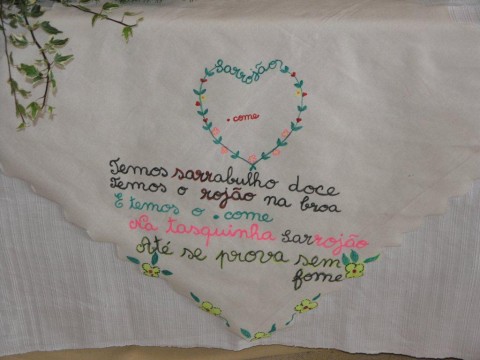 Sarrojão
.come
Temos sarrabulho doce
Temos o rojão na broa
E temos o .come
Na tasquinha sarrojão
Até se prova sem
fome